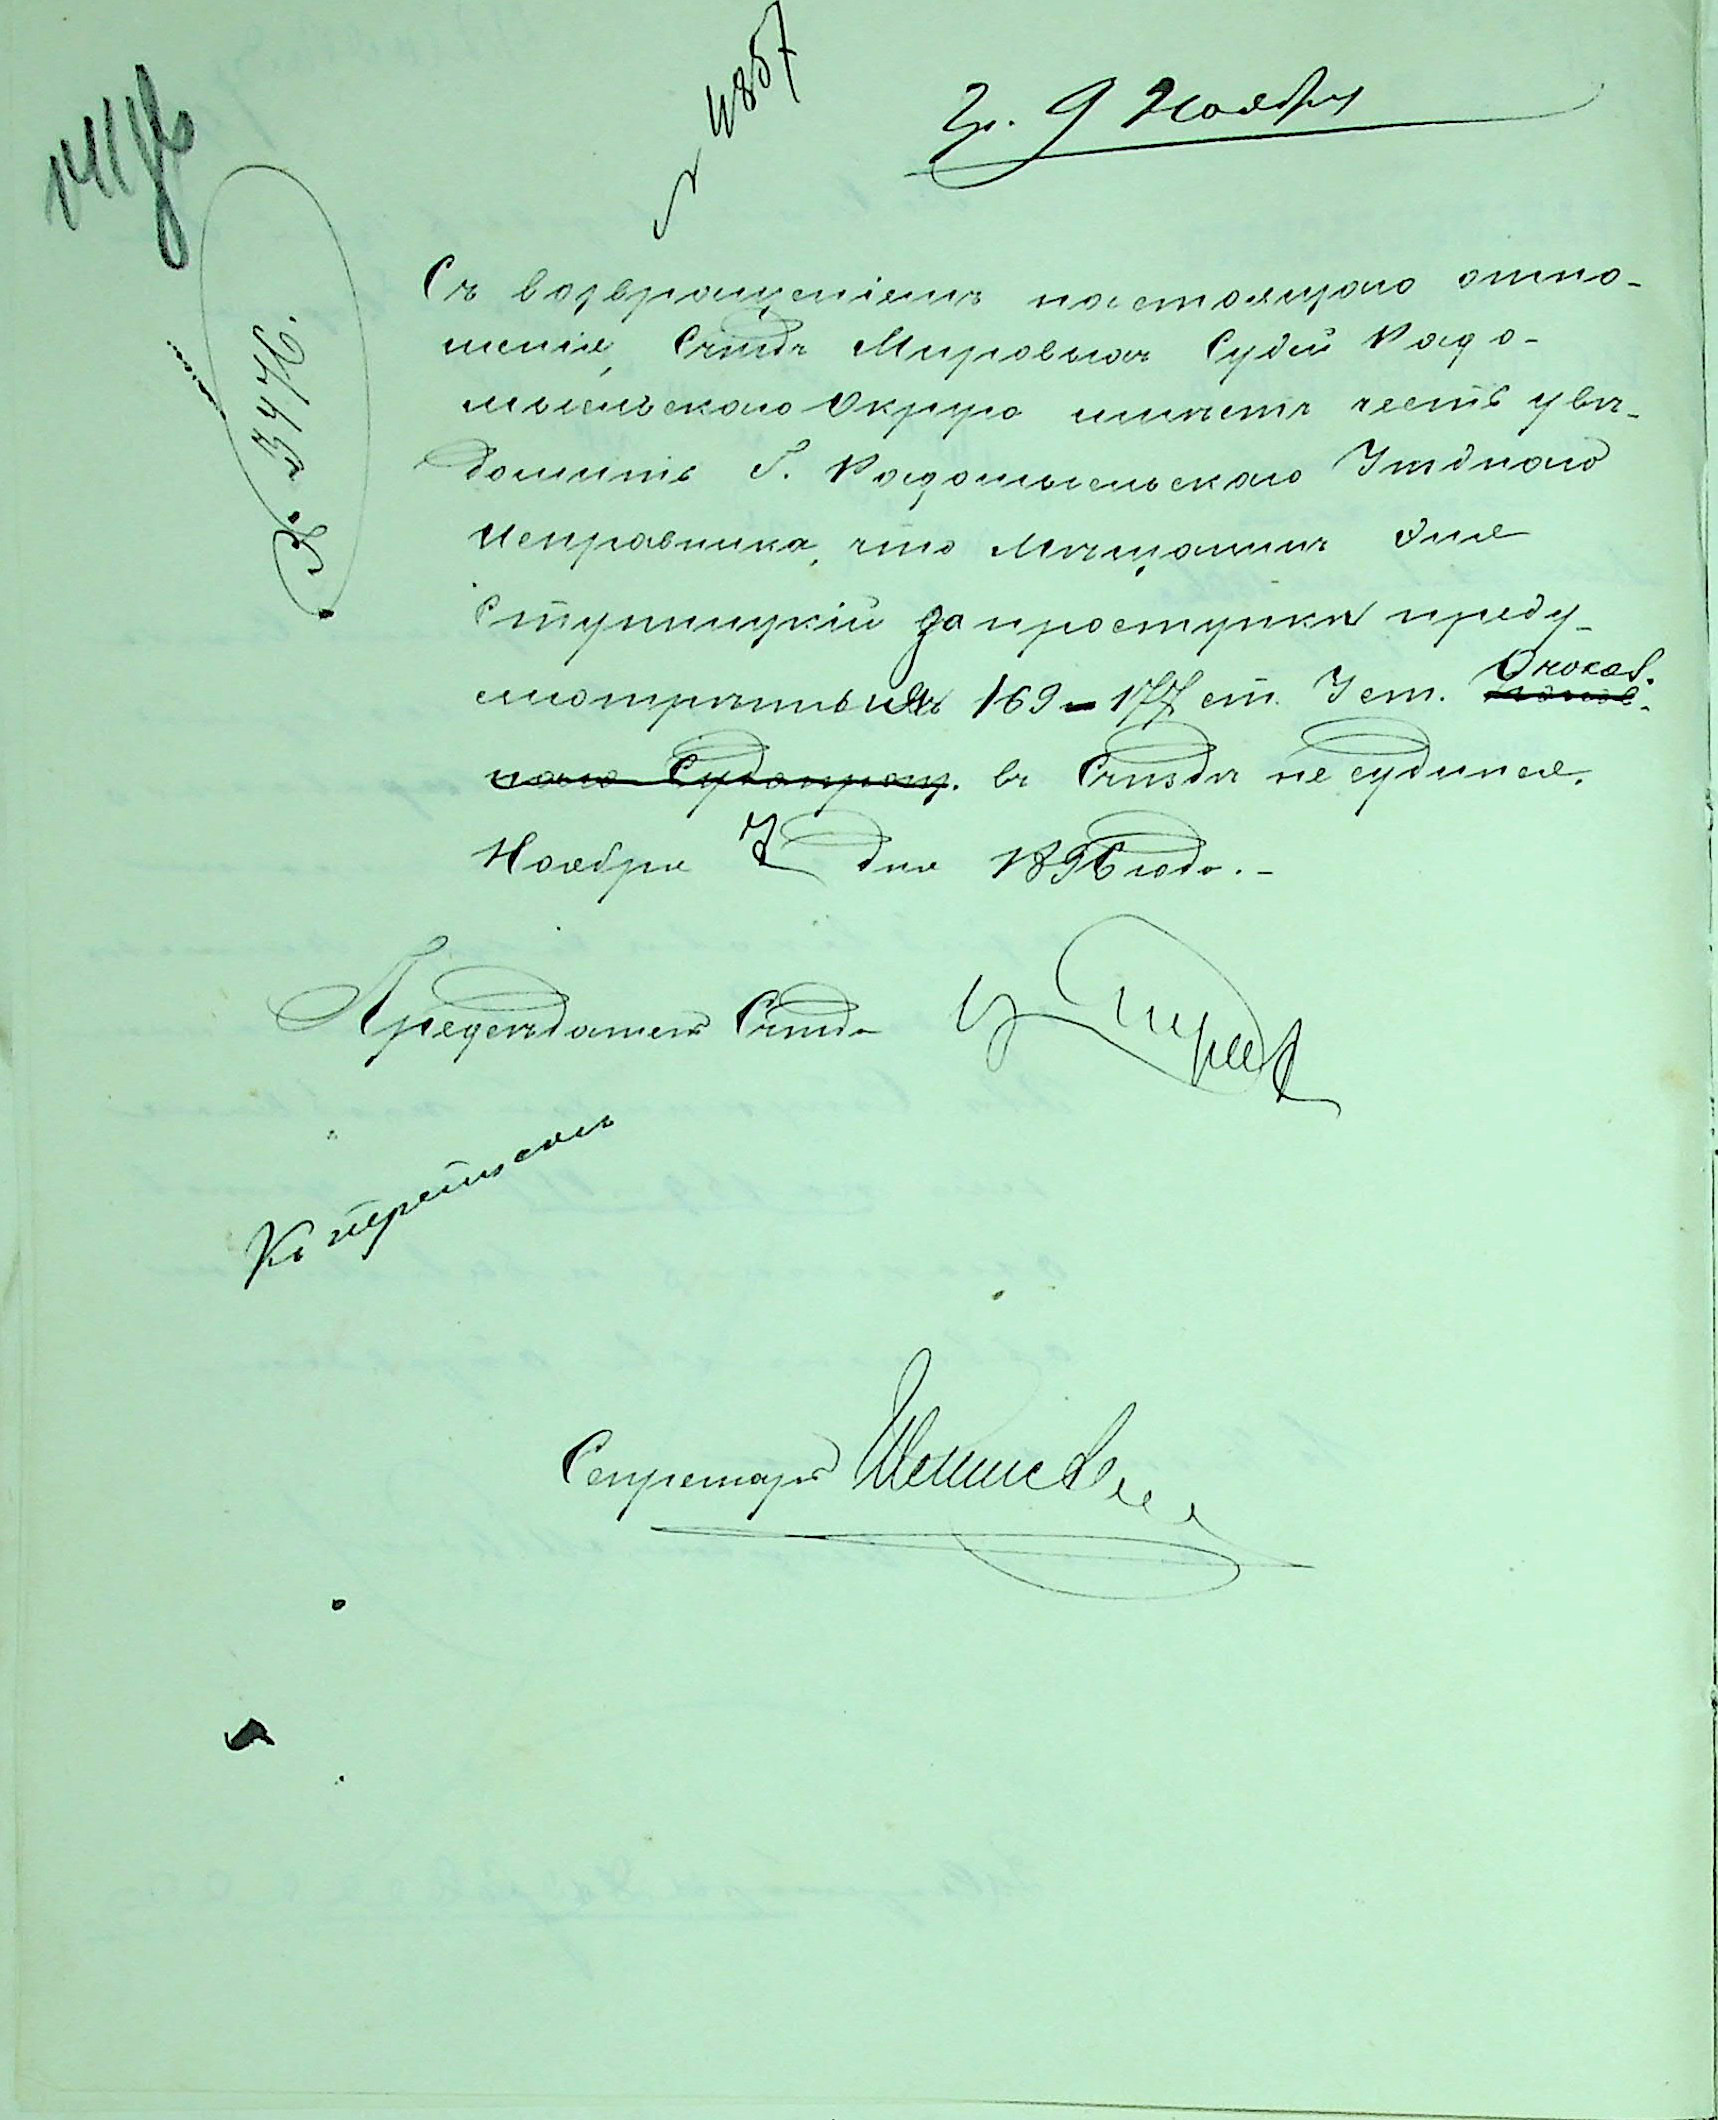 № 4857
9 Ноября
№ 3476.
Съ возвращеніемъ настоящаго отно-
шенія, Съѣздъ Мировыхъ Судей Радо-
мысльскаго Округа имѣетъ честь увѣ-
домить Г. Радомысльскаго Уѣзднаго
Исправника, что Мѣщанинъ
Ступницкій за проступки преду-
смотрѣнныхъ 169–177 ст. Уст. О наказ.
наго Судопроиз. въ Съѣздѣ не судился.
Ноября 7 дня 1896 года.-
Предсѣдатель Съѣзда
Секретарь